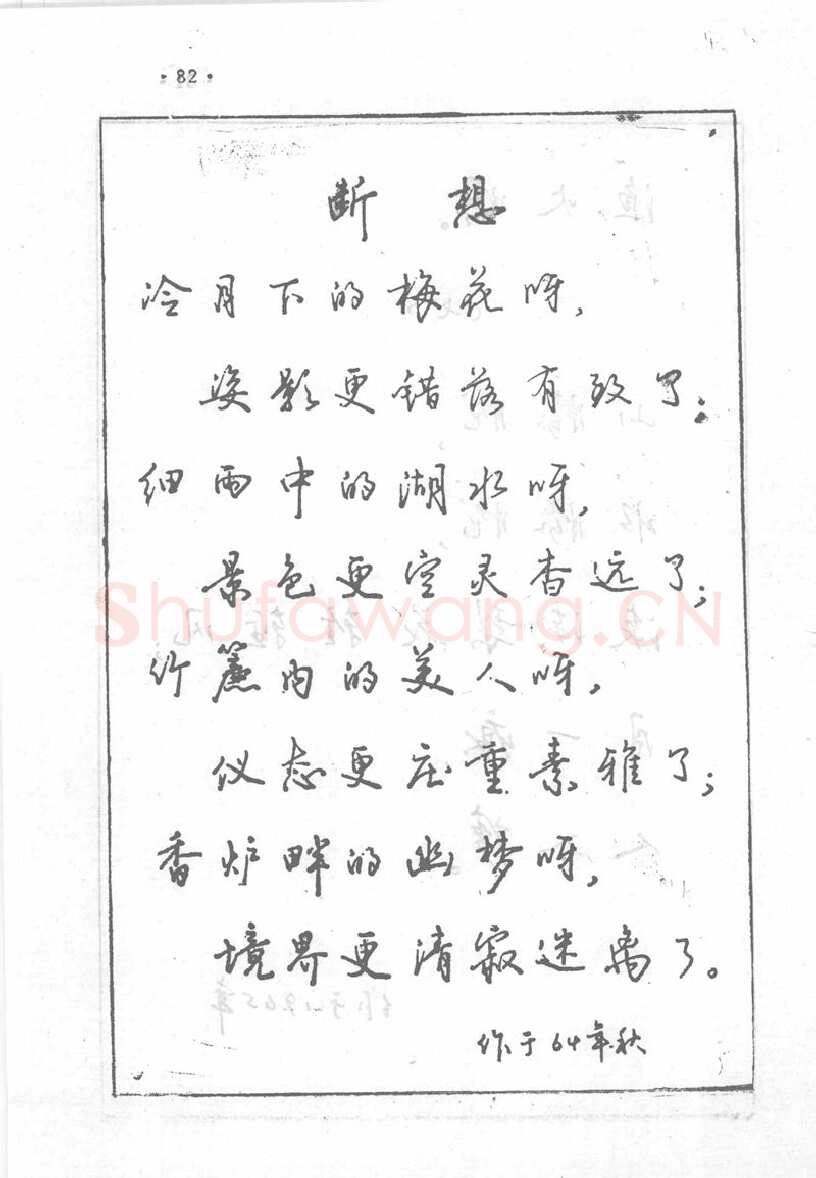 ·82·
断想
冷月下的梅花呀，
姿影更错落有致了；
细雨中的湖水呀，
景色更空灵杳远了；
Shufawang.CN
竹帘内的美人呀，
仪态更庄重素雅了；
香炉畔的幽梦呀，
境界更清寂迷离了。
作于64年秋